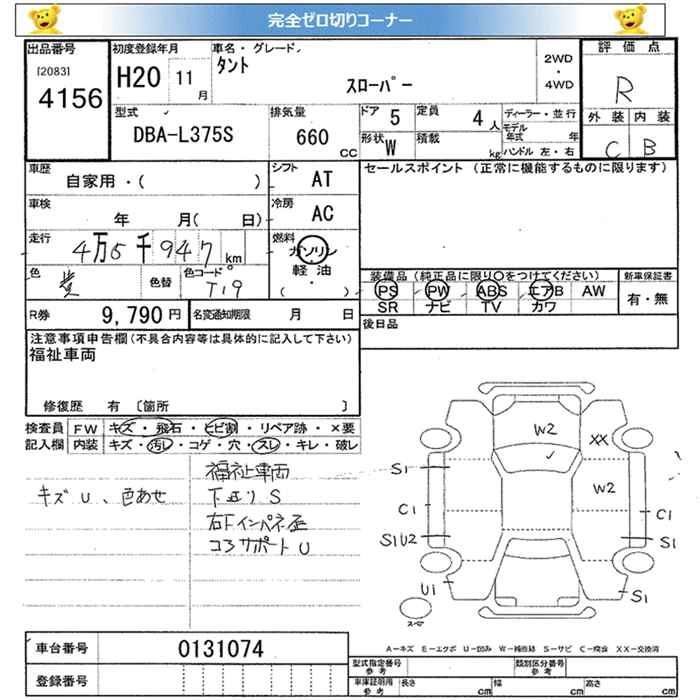 完全ゼロ切りコーナー
出品番号 初度登録年月 車名・グレード 評価点
[2083] H20 11 月 タント 2WD・4WD R
4156 スローパー
型式 排気量 ドア 5 定員 4 人 ディーラー・並行 外装 内装
DBA-L375S 660 CC 形状 W 積載 kg モデル年式 年 C B
ハンドル 左・右
車歴 シフト セールスポイント (正常に機能するものに限ります)
自家用・( ) AT
車検 冷房
年 月( 日) AC
走行 4万5千947 km 燃料 ガソリン
軽油
( )
色 色替 色コード T19
装備品 (純正品に限り○をつけてください) 新車保証書
PS PW ABS エアB AW 有・無
SR ナビ TV カワ
R券 9,790円 名変通知期限 月 日 後日品
注意事項申告欄 (不具合内容等は具体的に記入して下さい)
福祉車両
修復歴 有 〔箇所 〕
検査員 FW キズ・飛石・ヒビ割・リペア跡・×要
記入欄 内装 キズ・汚し・コゲ・穴・スレ・キレ・破レ
キズU、色あせ
福祉車両
下廻りS
右Fインパネ歪
コアサポートU
W2
XX
S1
W2
C1 C1
S1U2 S1
U1 S1
スペア
A-キズ E-エクボ U-凹み W-補修跡 S-サビ C-腐食 XX-交換済
車台番号 0131074
登録番号
型式指定番号 参考 類別区分番号 参考
車庫証明用 参考 長さ cm 幅 cm 高さ cm